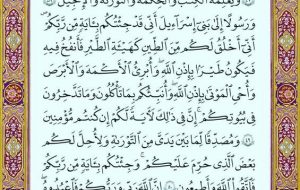 وَيُعَلِّمُهُ ٱلْكِتَٰبَ وَٱلْحِكْمَةَ وَٱلتَّوْرَىٰةَ وَٱلْإِنجِيلَ
وَرَسُولًا إِلَىٰ بَنِىٓ إِسْرَٰٓءِيلَ أَنِّى قَدْ جِئْتُكُم بِـَٔايَةٍ مِّن رَّبِّكُمْ
أَنِّىٓ أَخْلُقُ لَكُم مِّنَ ٱلطِّينِ كَهَيْـَٔةِ ٱلطَّيْرِ فَأَنفُخُ فِيهِ
فَيَكُونُ طَيْرًۢا بِإِذْنِ ٱللَّهِ ۖ وَأُبْرِئُ ٱلْأَكْمَهَ وَٱلْأَبْرَصَ
وَأُحْىِ ٱلْمَوْتَىٰ بِإِذْنِ ٱللَّهِ ۖ وَأُنَبِّئُكُم بِمَا تَأْكُلُونَ وَمَا تَدَّخِرُونَ
فِى بُيُوتِكُمْ ۚ إِنَّ فِى ذَٰلِكَ لَـَٔايَةً لَّكُمْ إِن كُنتُم مُّؤْمِنِينَ
وَمُصَدِّقًا لِّمَا بَيْنَ يَدَىَّ مِنَ ٱلتَّوْرَىٰةِ وَلِأُحِلَّ لَكُم
بَعْضَ ٱلَّذِى حُرِّمَ عَلَيْكُمْ ۚ وَجِئْتُكُم بِـَٔايَةٍ مِّن رَّبِّكُمْ
فَٱتَّقُوا۟ ٱللَّهَ وَأَطِيعُونِ إِنَّ ٱللَّهَ رَبِّى وَرَبُّكُمْ فَٱعْبُدُوهُ